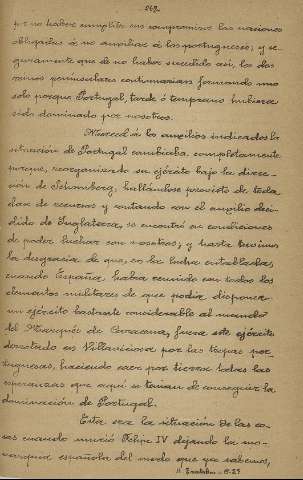 262.
por no haber cumplido sus compromisos las naciones
obligadas á no auxiliar á los portugueses; y se-
guramente que de no haber sucedido así, los dos
reinos peninsulares continuarían formando uno
solo porque Portugal, tarde ó temprano hubiera
sido dominado por nosotros.
Merced á los auxilios indicados la
situación de Portugal cambiaba completamente
porque, reorganizado su ejército bajo la direc-
ción de Schomberg, hallándose provisto de toda
clase de recursos y contando con el auxilio deci-
dido de Inglaterra, se encontró en condiciones
de poder luchar con nosotros; y hasta tuvimos
la desgracia de que, en la lucha entablada
cuando España, había reunido con todos los
elementos militares de que podía disponer
un ejército bastante considerable al mando
del Marqués de Caracena, fuera este ejército
derrotado en Villaviciosa por las tropas por-
tuguesas, haciendo caer por tierra todas las
esperanzas que aquí se tenían de conseguir la
dominación de Portugal.
Esta era la situación de las co-
sas cuando murió Felipe IV dejando la mo-
narquía española del modo que ya sabemos,